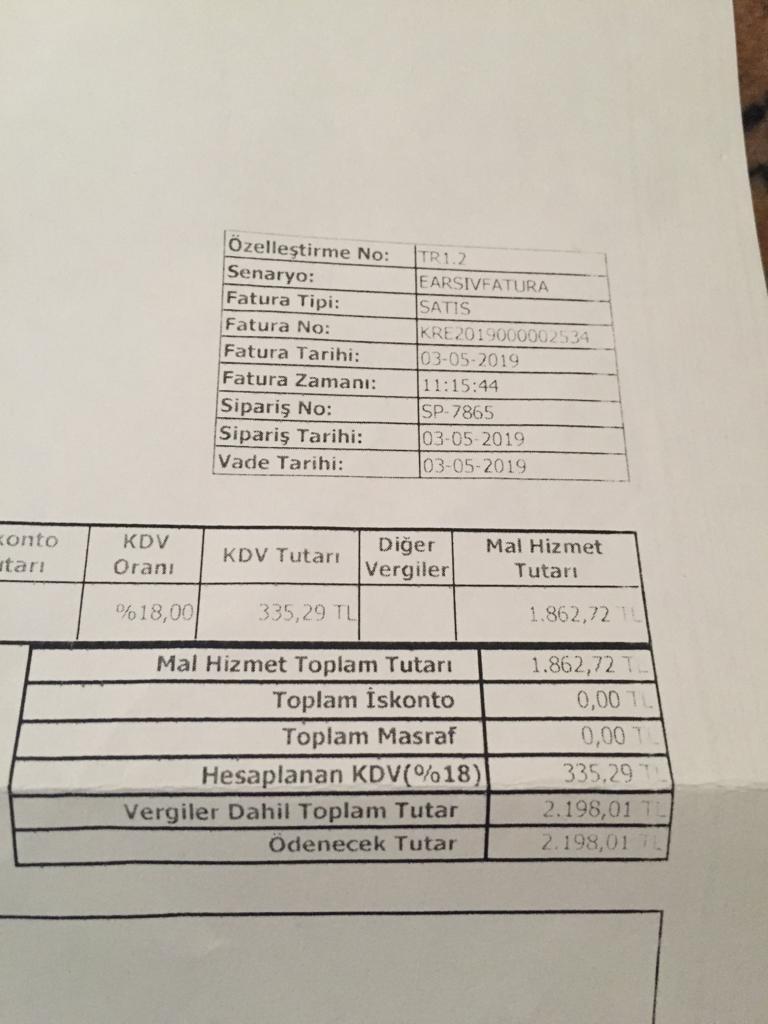 Özelleştirme No: TR1.2
Senaryo: EARSIVFATURA
Fatura Tipi: SATIS
Fatura No: KRE2019000002534
Fatura Tarihi: 03-05-2019
Fatura Zamanı: 11:15:44
Sipariş No: SP-7865
Sipariş Tarihi: 03-05-2019
Vade Tarihi: 03-05-2019
KDV Oranı KDV Tutarı Diğer Vergiler Mal Hizmet Tutarı
%18,00 335,29 TL 1.862,72 TL
Mal Hizmet Toplam Tutarı 1.862,72 TL
Toplam İskonto 0,00 TL
Toplam Masraf 0,00 TL
Hesaplanan KDV(%18) 335,29 TL
Vergiler Dahil Toplam Tutar 2.198,01 TL
Ödenecek Tutar 2.198,01 TL